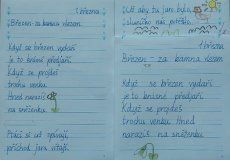 1. března
Březen - za kamna vlezem.
Když se březen vydaří
je to brzké předjaří.
Když se projdeš
trochu venku
Hned narazíš
na sněženku.
Ptáci si už zpívají
příchod jara vítají.
Už aby tu jaro bylo,
sluníčko nás potěšilo.
1. března
Březen - za kamna vlezem
Když se březen vydaří
je to krásné předjaří.
Když se projdeš
trochu venku. Hned
narazíš na sněženku.